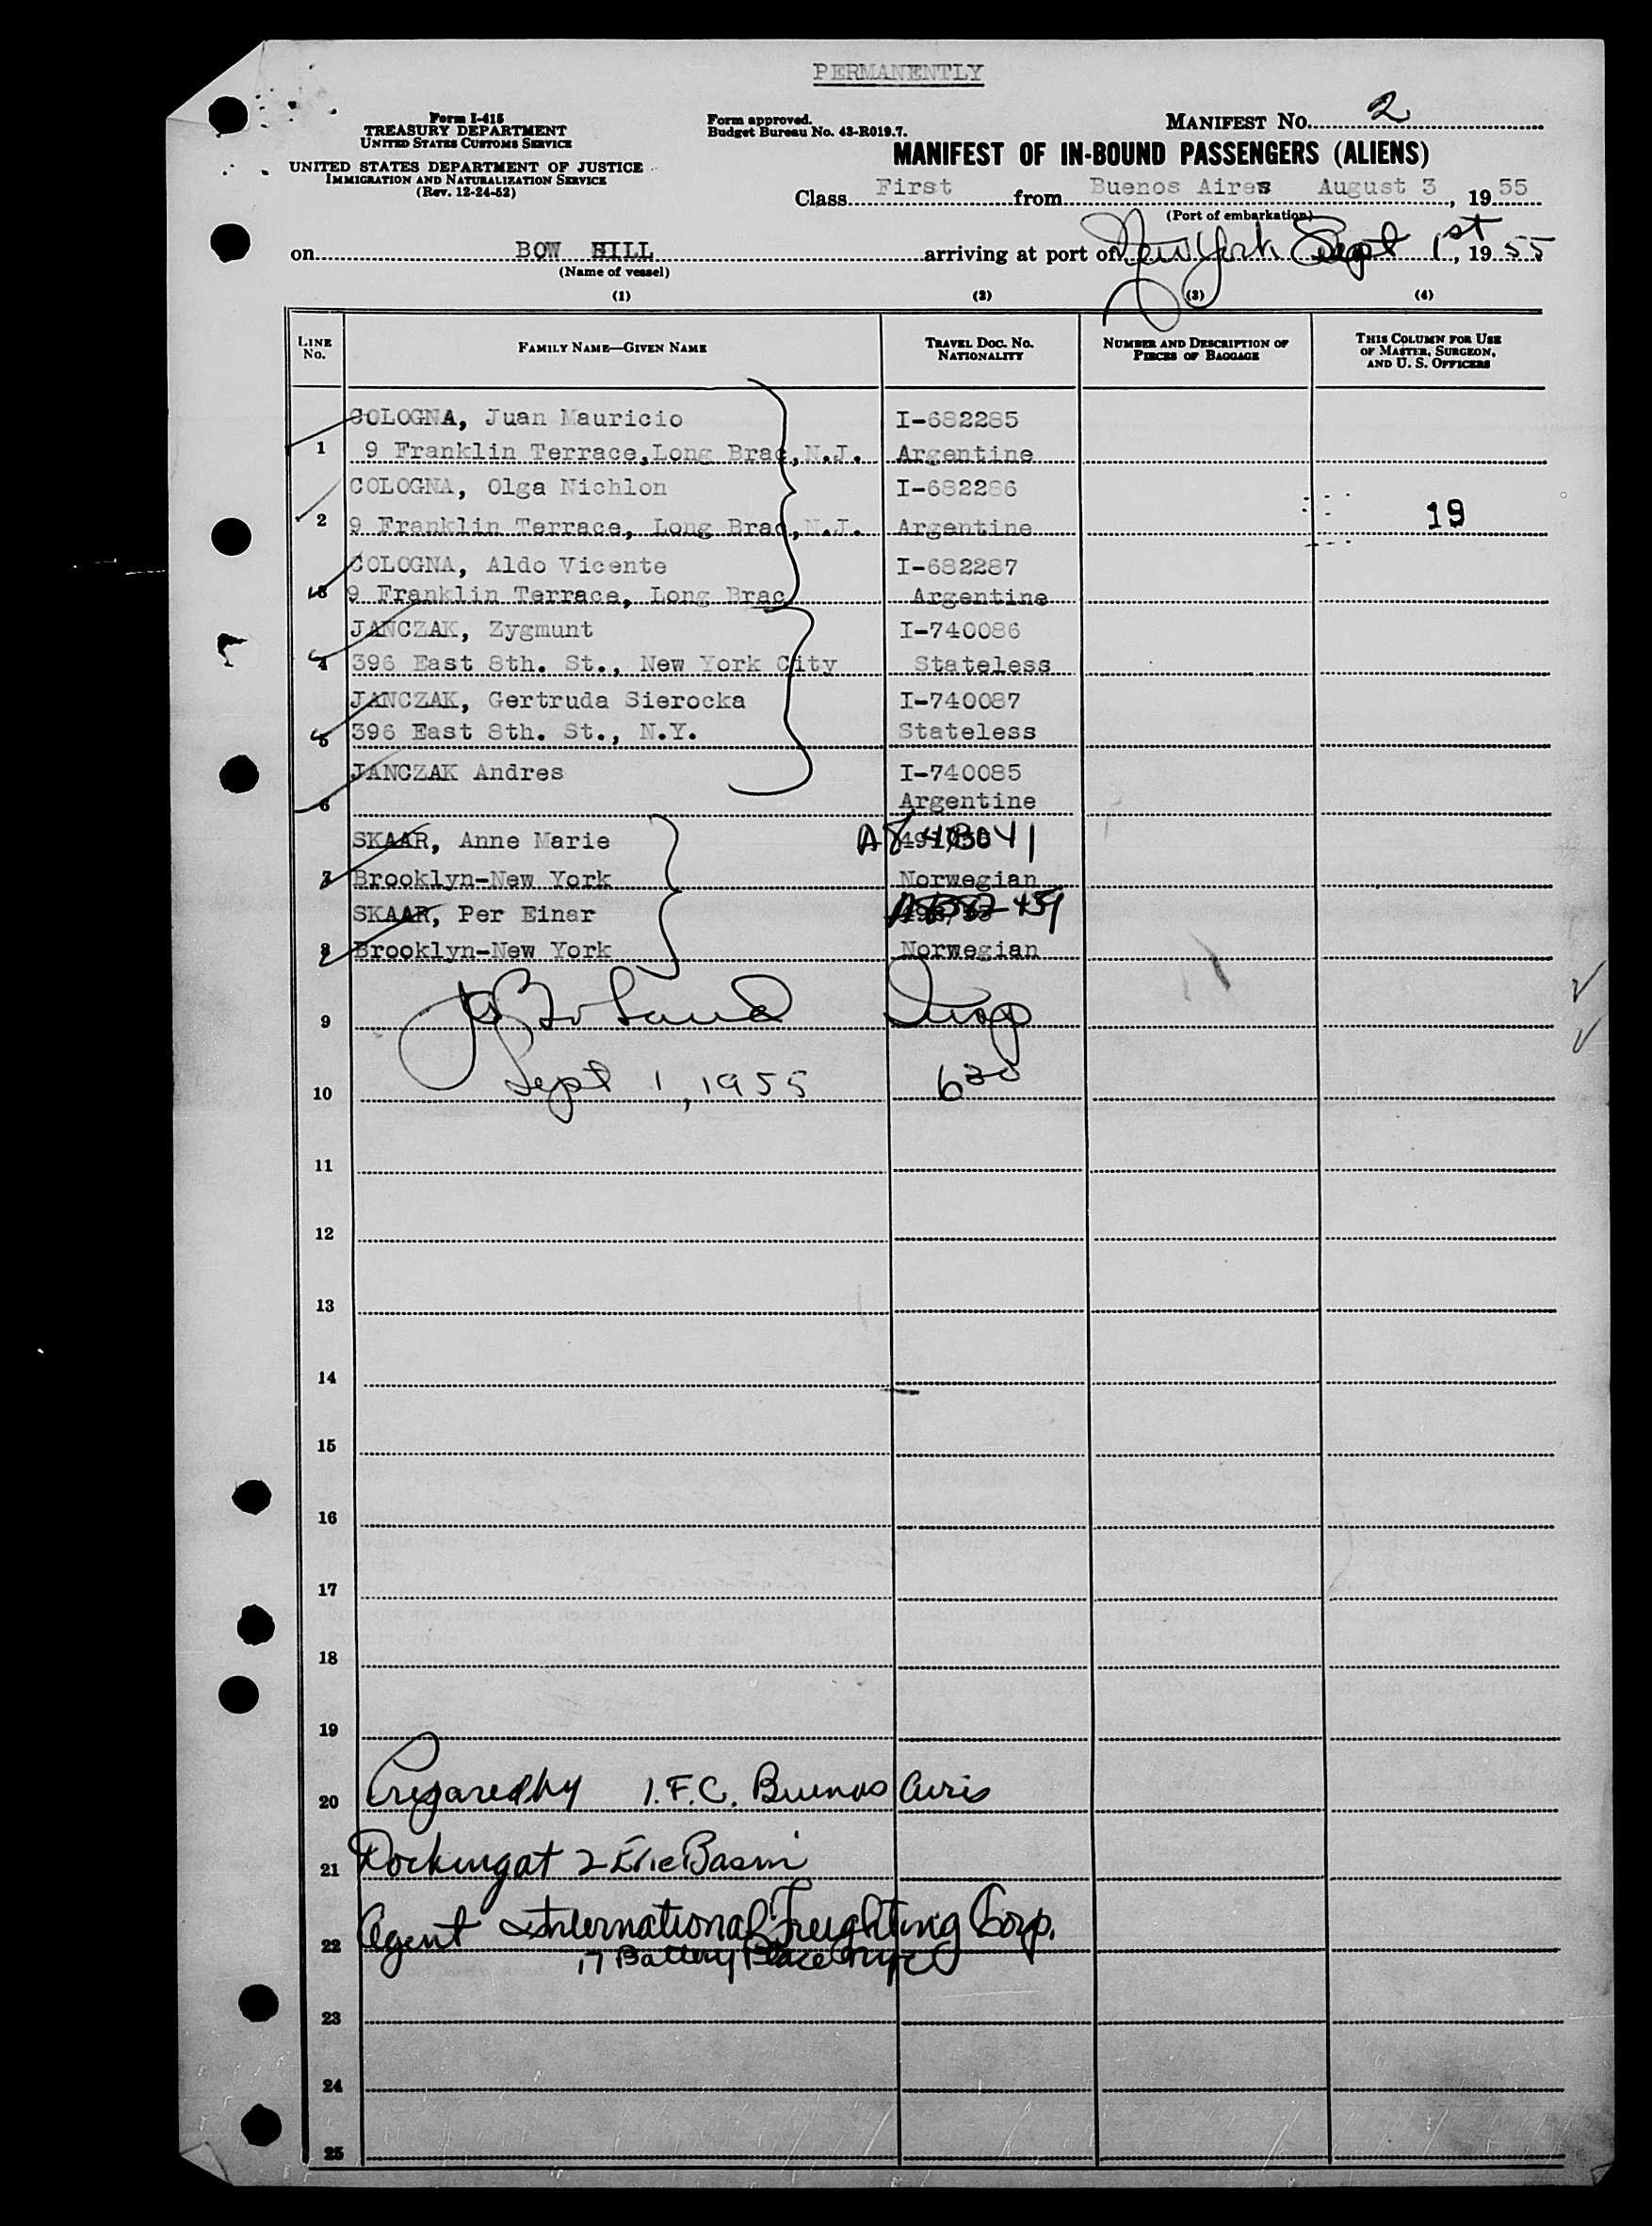 PERMANENTLY
Form I-415
TREASURY DEPARTMENT
UNITED STATES CUSTOMS SERVICE
UNITED STATES DEPARTMENT OF JUSTICE
IMMIGRATION AND NATURALIZATION SERVICE
(Rev. 12-24-52)
Form approved.
Budget Bureau No. 43-R019.7.
MANIFEST No. 2
MANIFEST OF IN-BOUND PASSENGERS (ALIENS)
Class First from Buenos Aires August 3, 1955
(Port of embarkation)
on BOW HILL arriving at port of New York Sept 1st, 1955
(Name of vessel)
(1) (2) (3) (4)
LINE No. FAMILY NAME—GIVEN NAME TRAVEL DOC. NO. NATIONALITY NUMBER AND DESCRIPTION OF PIECES OF BAGGAGE THIS COLUMN FOR USE OF MASTER, SURGEON, AND U. S. OFFICERS
COLOGNA, Juan Mauricio I-682285
1 9 Franklin Terrace,Long Brac,N.J. Argentine
COLOGNA, Olga Nichlon I-682286
2 9 Franklin Terrace, Long Brac,N.J. Argentine 19
COLOGNA, Aldo Vicente I-682287
3 9 Franklin Terrace, Long Brac Argentine
JANCZAK, Zygmunt I-740086
4 396 East 8th. St., New York City Stateless
JANCZAK, Gertruda Sierocka I-740087
5 396 East 8th. St., N.Y. Stateless
JANCZAK Andres I-740085
6 Argentine
SKAAR, Anne Marie
7 Brooklyn-New York Norwegian
SKAAR, Per Einar
8 Brooklyn-New York Norwegian
9
10 Sept 1, 1955 630
11
12
13
14
15
16
17
18
19
20 Prepared by I.F.C. Buenos Airis
21 Docking at 2 Erie Basin
22 Agent International Freighting Corp.
17 Battery Place NYC
23
24
25